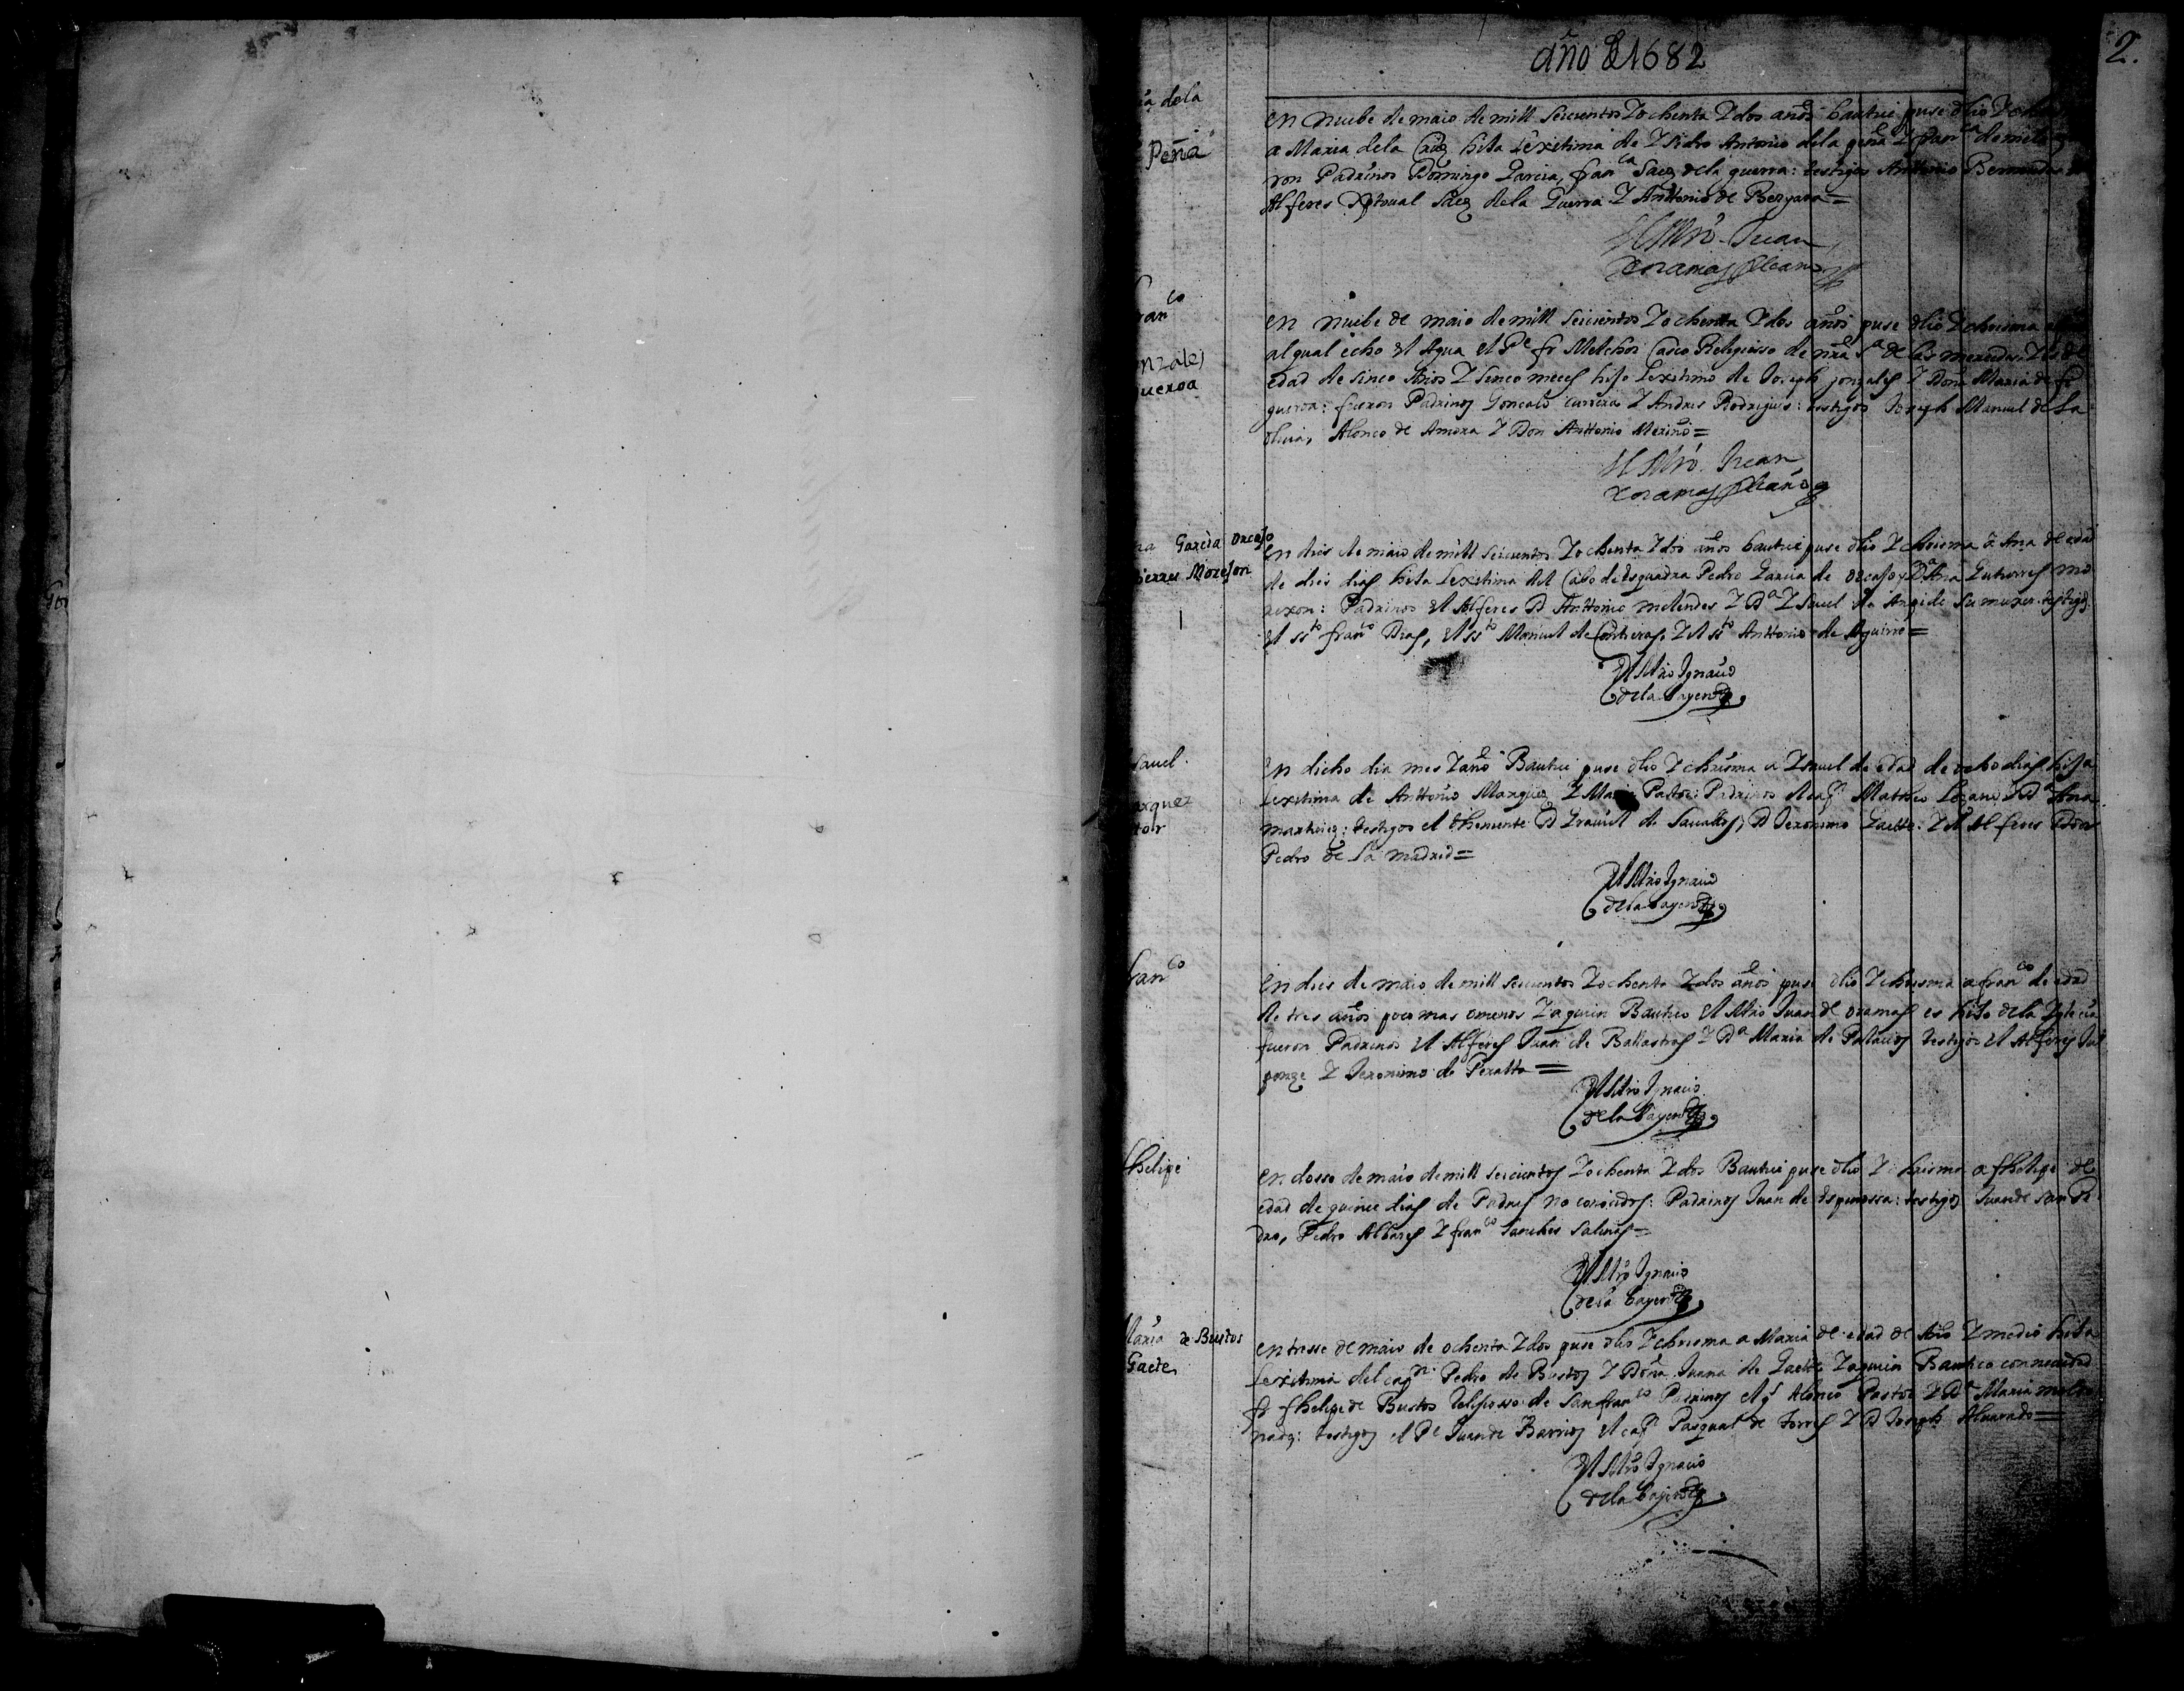 2.
año de 1682
ia de la
Peña
en nuebe de maio de mill seicientos Y ochenta Y dos años bautice puse olio Y
a Maria de la Cruz hija lexitima de Ysidro Antonio de la peña Y franca de
ron Padrinos Domingo Garcia, franca Saez de la guerra: testigos Anttonio Bermudez
Alferes Xptoual Saez de la Guerra Y Anttonio de Bergara=
El Mro Juan
franco
nzalez
gueroa
en nuebe de maio de mill seicientos Y ochenta Y dos años puse olio Y chrisma
al qual echo el Agua el Pe fr Melchor Casco Religiosso de nra Sa de las mersedes
edad de sinco años Y sinco meces hijo lexitimo de Joseph gonzales Y Doña Maria de fi
gueroa: fueron Padrinos Goncalo carrera Y Andres Rodrigues: testigos Joseph Manuel de la
oliua, Alonco de Amora Y Don Anttonio Merino=
El Mro Juan
na Garcia Orcajo
tierrez Morejon
en dies de maio de mill seicientos Y ochenta Y dos años bautice puse olio Y chrisma a Ana de edad
de dies dias hija lexitima del Cabo de esquadra Pedro Garcia de orcajo y Da Ana Gutierres mo
rexon: Padrinos el Alferes D Anttonio melendes Y Da Ysauel de Angide su muxer. testigos
el sto franco Dias, el sto Manuel de Contreras, Y el sto Anttonio de Aguirre=
El Mro Ignacio
de la bayen
sauel.
arquez
tor
en dicho dia mes Y año Bautice puse olio Y chrisma a Ysauel de edad de ocho dias hija
lexitima de Anttonio Marquez Y Maria Pastor: Padrinos el capn Matheo Lozano Y Da Ana
martinez: testigos el theniente D Grauiel de Saualles, D Jeronimo Gaette. Y el Alferes Don
Pedro de la madrid=
El Mro Ignacio
de la bayen
franco
en dies de maio de mill seicientos Y ochenta Y dos años puse olio Y chrisma a franco de edad
de tres años poco mas o menos Y a quien Bautico el Mro Juan de oramas es hijo de la Yglecia
fueron Padrinos el Alferes Juan de Ballastros Y Da Maria de Palacios testigos el Alferes Jul
ponze Y Jeronimo de Peralta=
El Mro Ignacio
de la bayen
fhelipe
en dosse de maio de mill seicientos Y ochenta Y dos Bautice puse olio Y chrisma a fhelipe de
edad de quince dias de Padres no conocidos: Padrinos Juan de espinossa: testigos Juan de san Pe
dro, Pedro Albares Y franco Sanches Salinas=
El Mro Ignacio
de la bayen
Maria de Bustos
Gaete
en tresse de maio de ochenta Y dos puse olio Y chrisma a Maria de edad de Año Y medio hija
lexitima del capn Pedro de Bustos Y Doña Juana de Gaette Y a quien Bautico con necesidad
fr fhelipe de Bustos Relijosso de San franco Padrinos el Alonco Pastor Y Da Maria maldo
nado: testigos el Pe Juan de Barrios el capn Pasqual de torres Y D Joseph Aluarado=
El Mro Ignacio
de la bayen